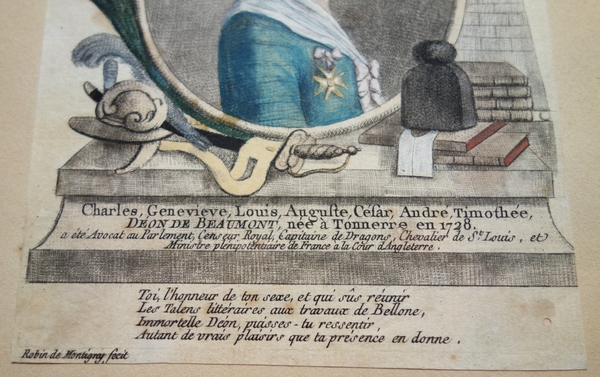 Charles, Genevieve, Louis, Auguste, César, Andre, Timothée,
DEON DE BEAUMONT, née à Tonnerre en 1728.
a été Avocat au Parlement, Censeur Royal, Capitaine de Dragons, Chevalier de St. Louis, et
Ministre plenipotentiaire de France a la Cour d'Angleterre.
Toi, l'honneur de ton sexe, et qui sûs réunir
Les Talens littéraires aux travaux de Bellone,
Immortelle Deón, puisses-tu ressentir,
Autant de vrais plaisirs que ta présence en donne.
Robin de Montigny fecit